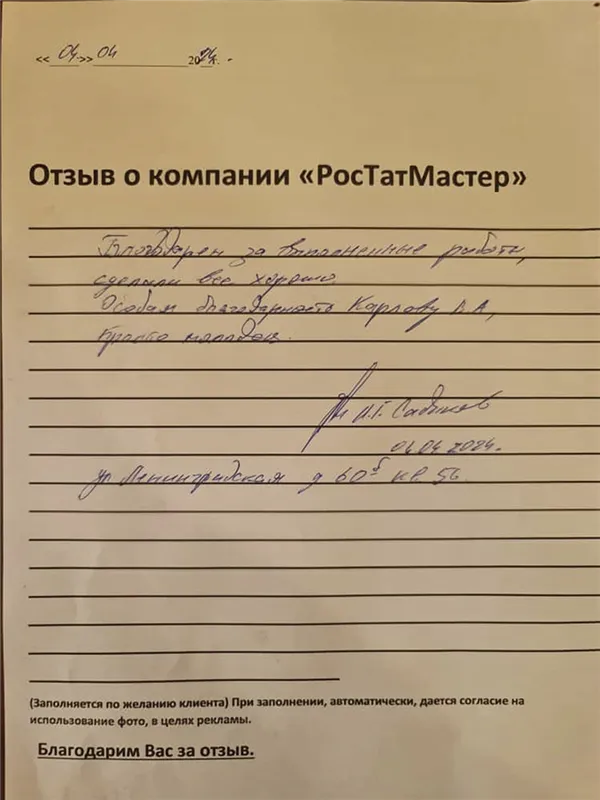 «04» 04 2024г.
Отзыв о компании «РосТатМастер»
Благодарен за выполненные работы,
сделали все хорошо.
Особая благодарность Карлову А.А,
просто молодец.
И.Г. Садыков
04.04 2024.
ул Ленинградская д 60б кв. 56.
(Заполняется по желанию клиента) При заполнении, автоматически, дается согласие на
использование фото, в целях рекламы.
Благодарим Вас за отзыв.